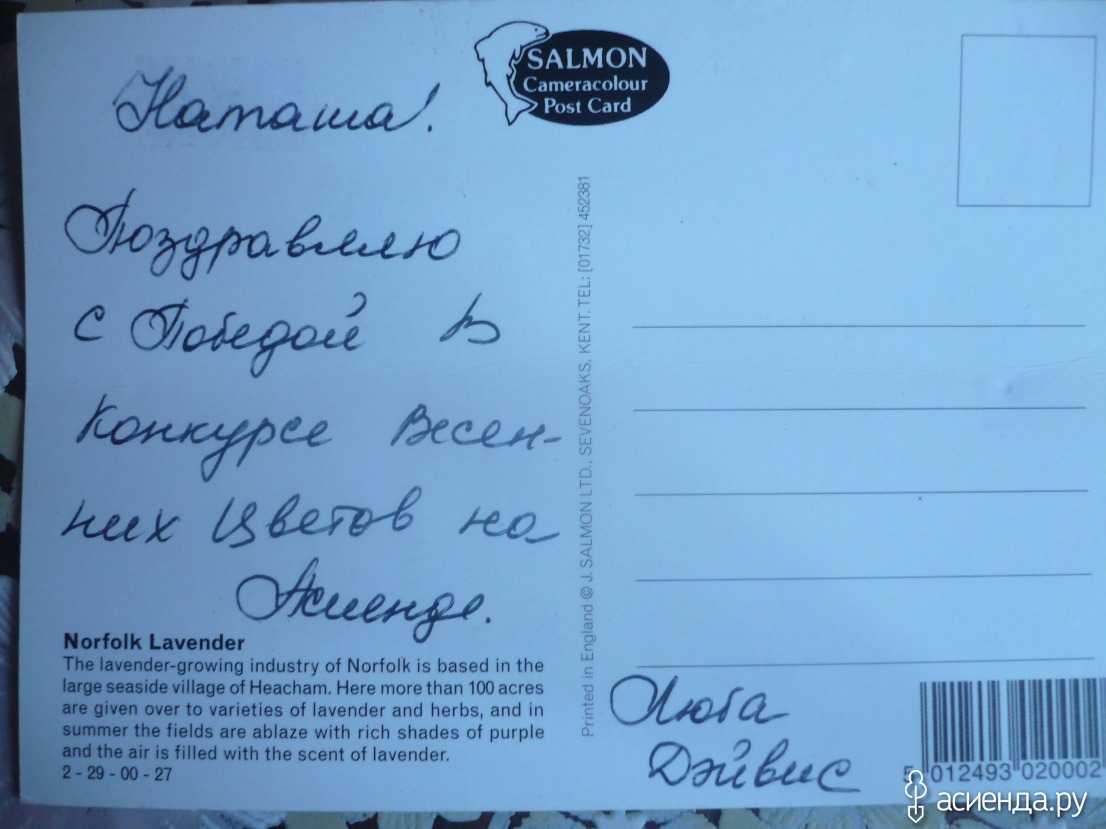 SALMON
Cameracolour
Post Card
Наташа!
Поздравляю
с Победой в
Конкурсе Весен-
них Цветов на
Асиенде.
Norfolk Lavender
The lavender-growing industry of Norfolk is based in the
large seaside village of Heacham. Here more than 100 acres
are given over to varieties of lavender and herbs, and in
summer the fields are ablaze with rich shades of purple
and the air is filled with the scent of lavender.
2 - 29 - 00 - 27
Printed in England © J. SALMON LTD., SEVENOAKS, KENT. TEL: [01732] 452381
Люба
Дэйвис
5 012493 020002
асиенда.ру